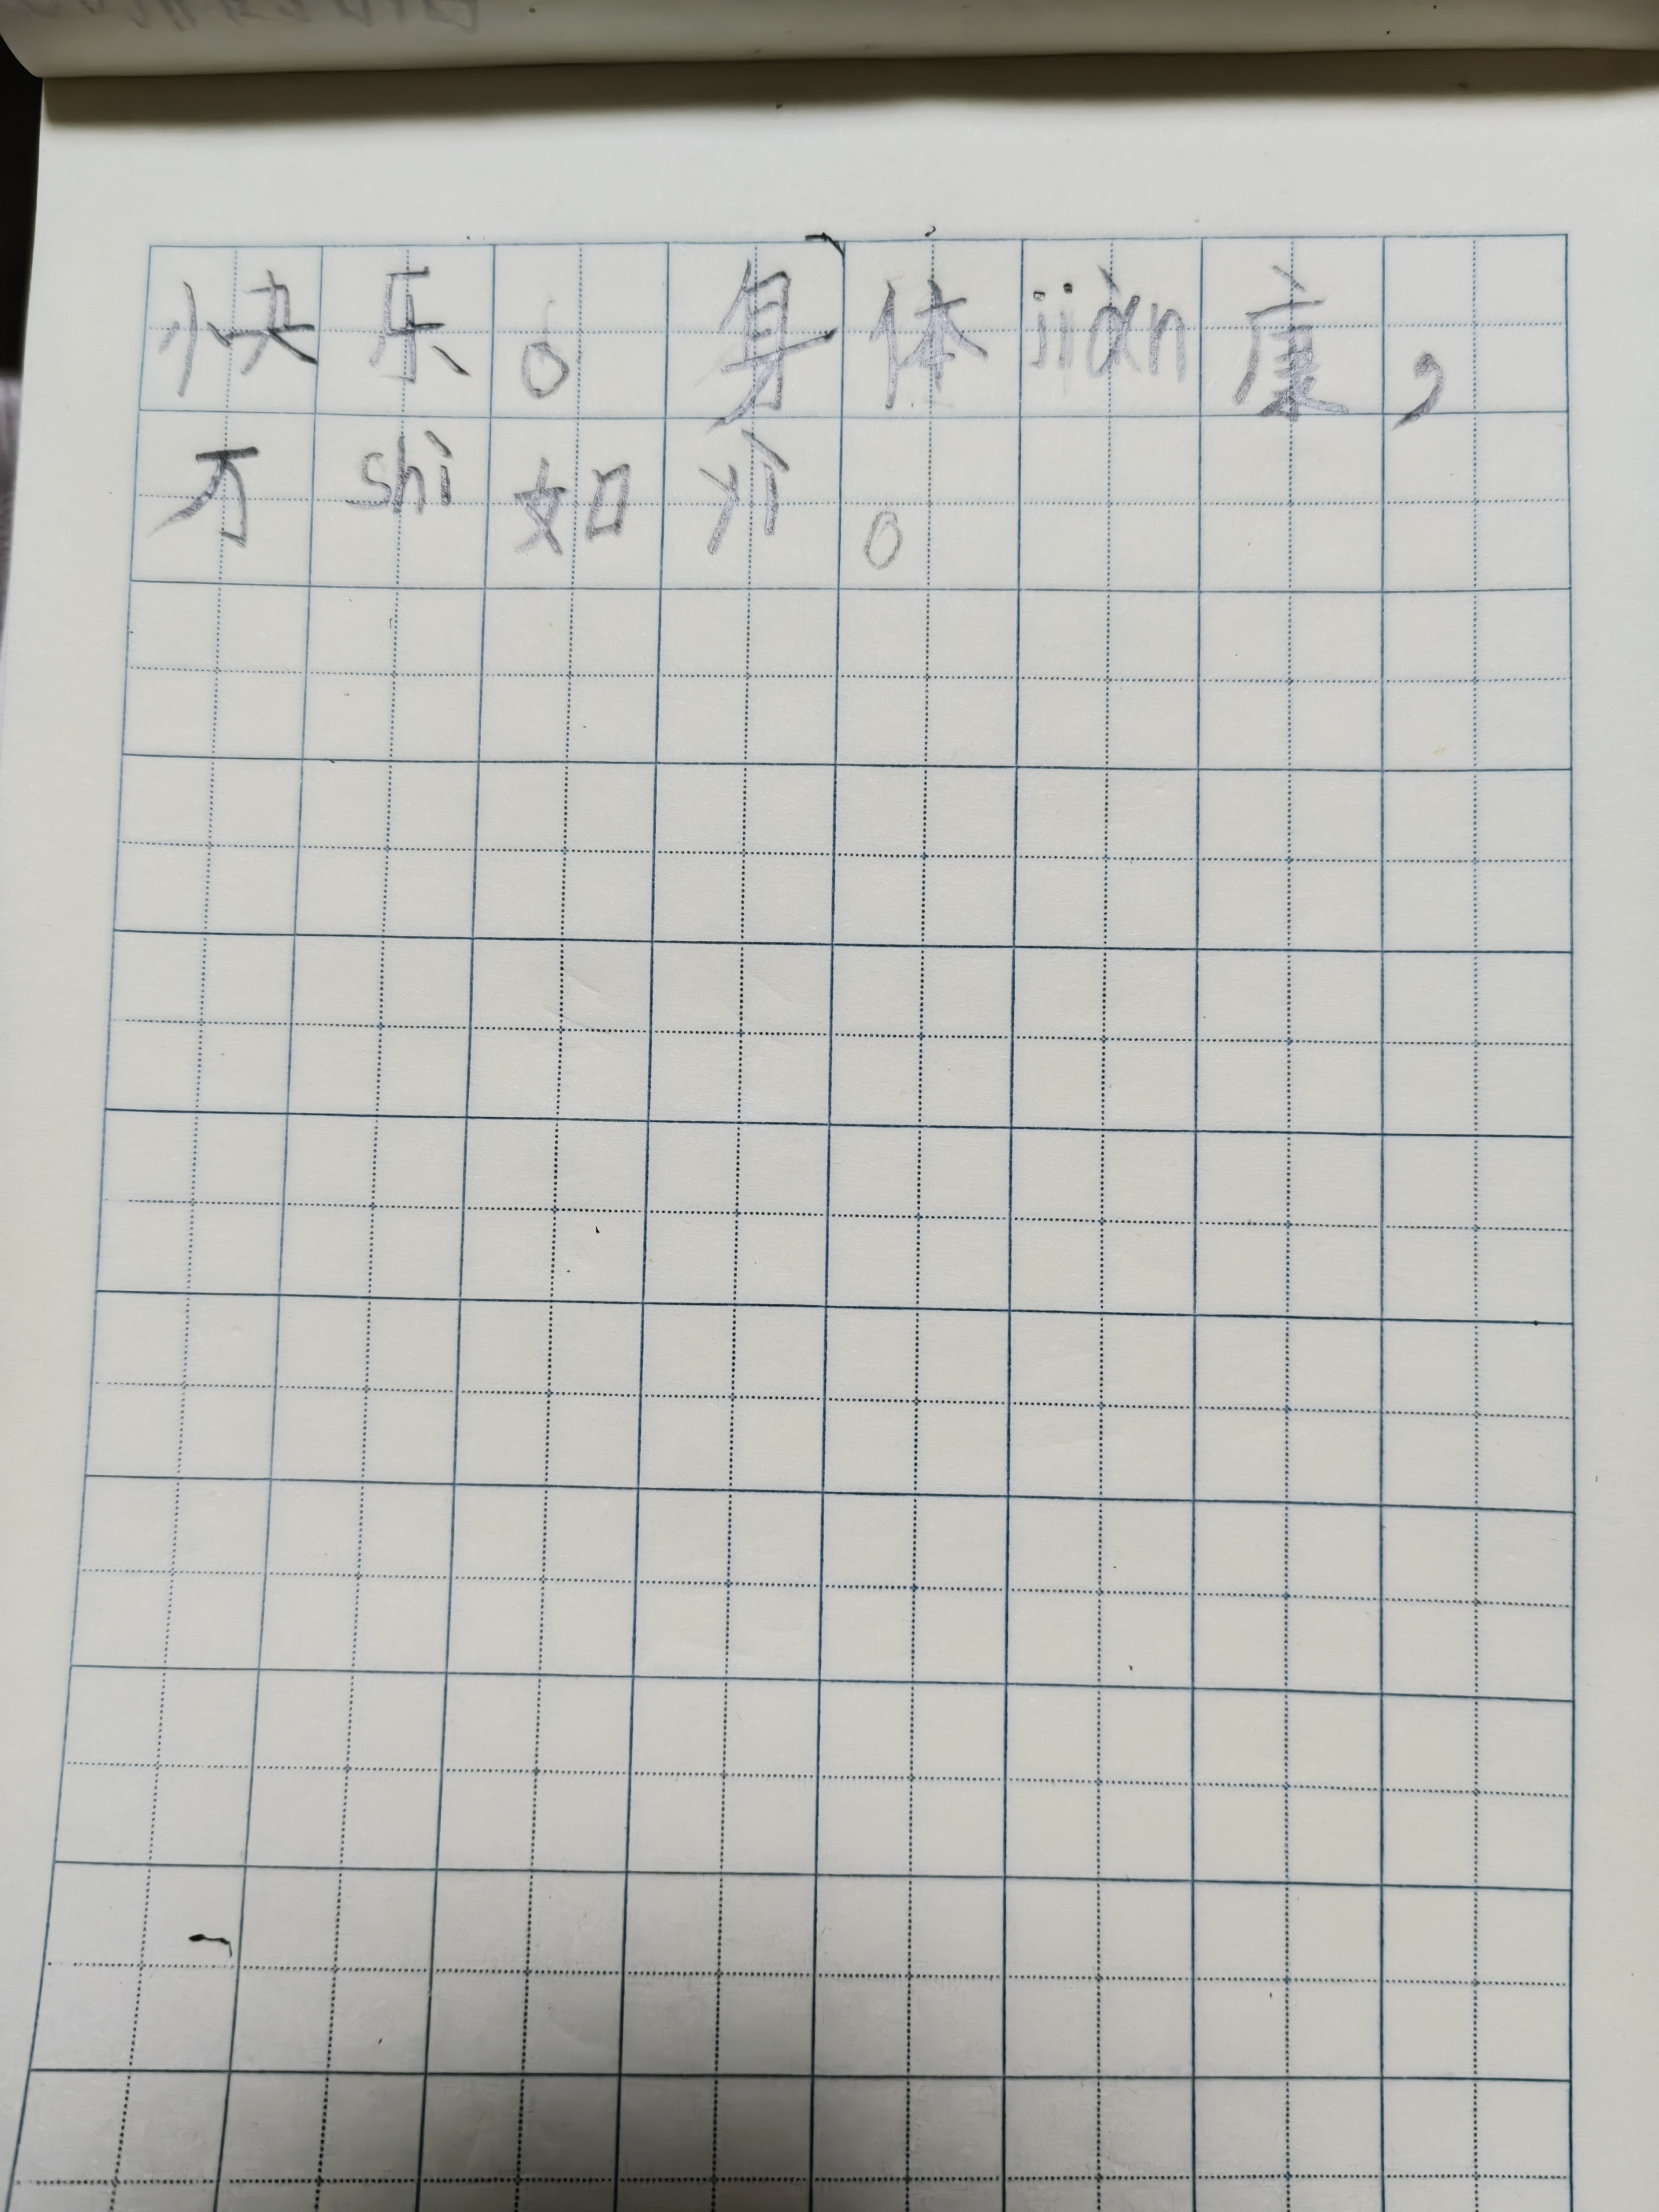 快乐。身体jiàn康，
万shì如个。